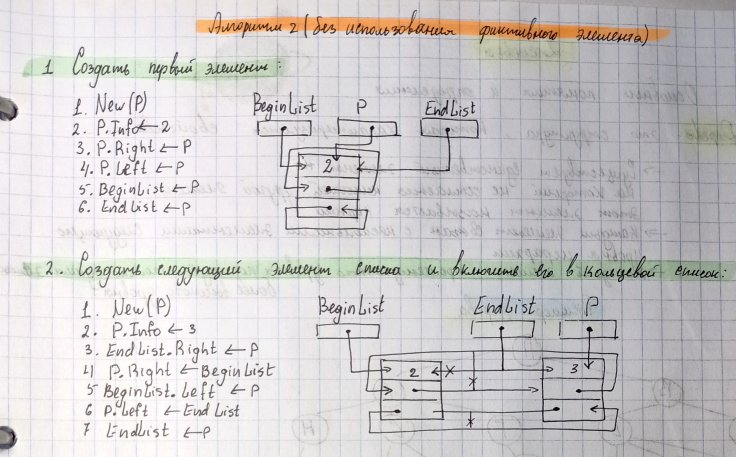 Алгоритм 2 (без использования фиктивного элемента)
1 Создать первый элемент:
1. New(P)
2. P.Info ← 2
3. P.Right ← P
4. P.Left ← P
5. BeginList ← P
6. EndList ← P
BeginList P EndList
2
2. Создать следующий элемент списка и включить его в кольцевой список:
1. New(P)
2. P.Info ← 3
3. EndList.Right ← P
4 P.Right ← BeginList
5 BeginList.Left ← P
6 P.Left ← EndList
7 EndList ← P
BeginList EndList P
2 3